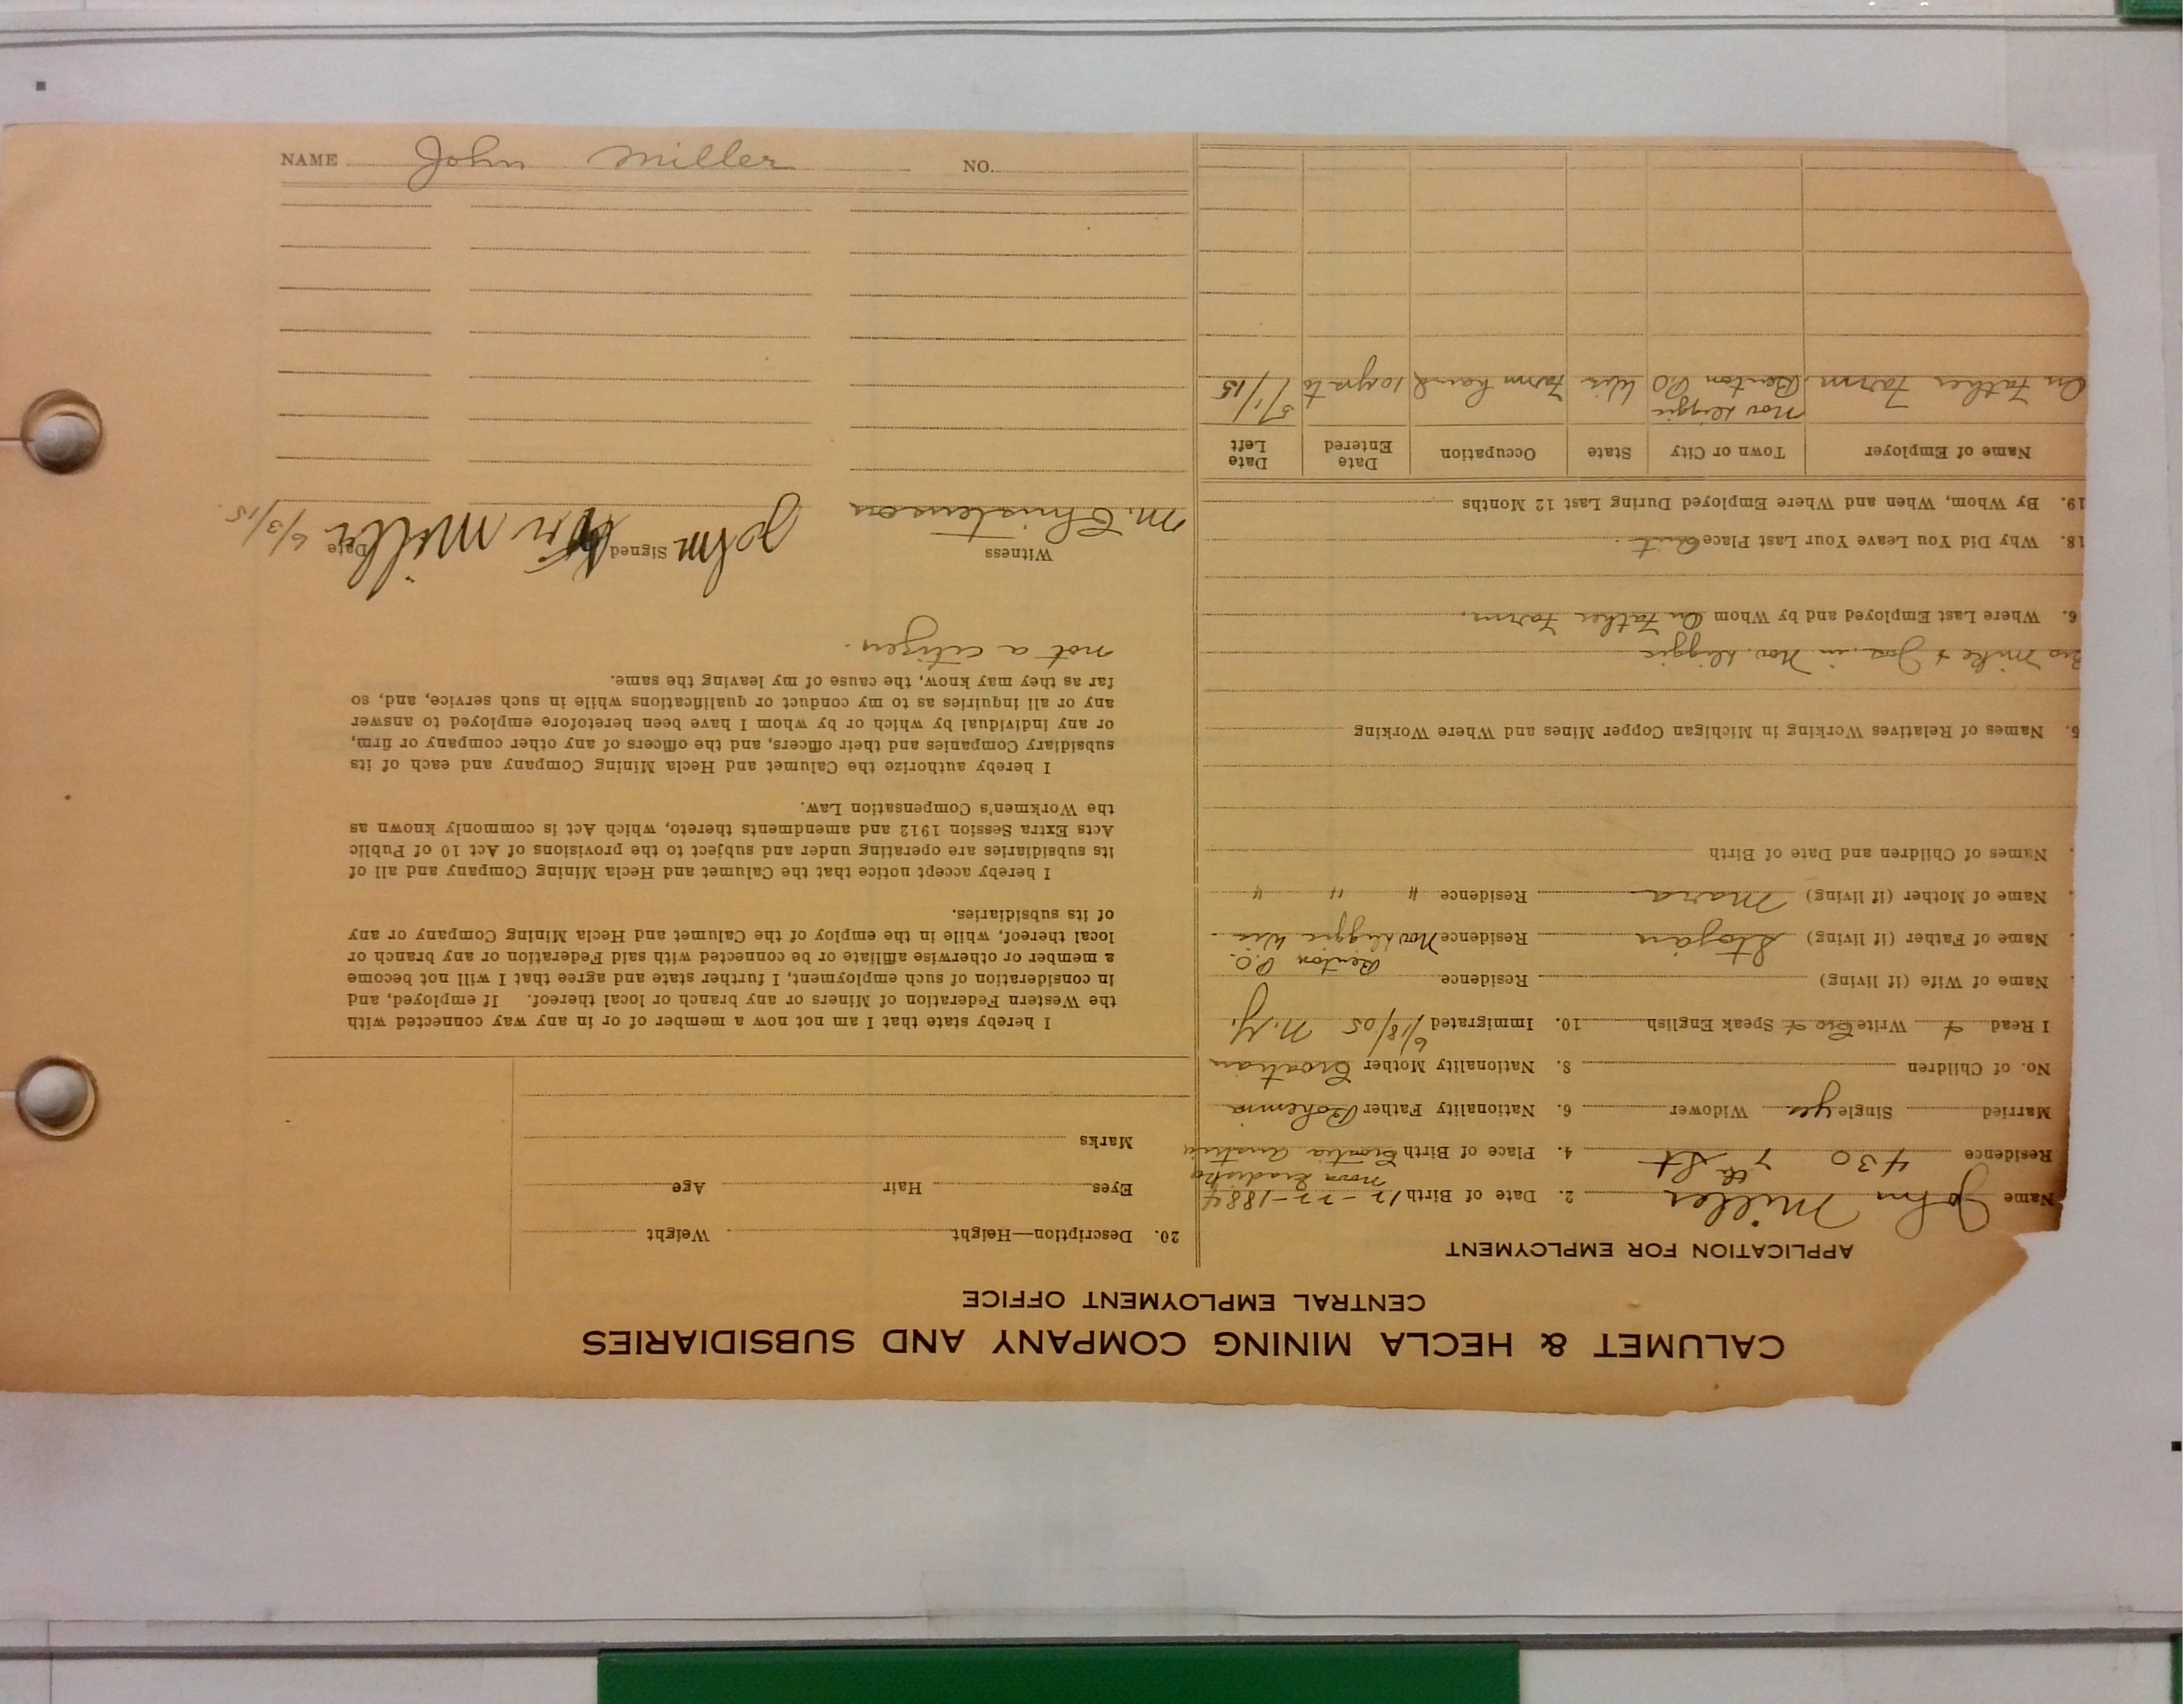 CALUMET & HECLA MINING COMPANY AND SUBSIDIARIES
CENTRAL EMPLOYMENT OFFICE
APPLICATION FOR EMPLOYMENT
Name John Miller 2. Date of Birth 12-22-1884
Residence 430 7th St 4. Place of Birth Croatia Austria
Nova Gradiska
Married Single yes Widower 6. Nationality Father Bohemia
No. of Children 8. Nationality Mother Croatian
I Read + Write Cro + Speak English 10. Immigrated 6/18/05 N.Y.
Name of Wife (if living) Residence
Benton P.O.
Name of Father (if living) Stojan Residence Wis
Name of Mother (if living) Mara Residence " " "
Names of Children and Date of Birth
5. Names of Relatives Working in Michigan Copper Mines and Where Working
Bro Mike + Joe in
6. Where Last Employed and by Whom On Father Farm.
18. Why Did You Leave Your Last Place Quit.
19. By Whom, When and Where Employed During Last 12 Months
Name of Employer Town or City State Occupation Date Entered Date Left
On Father Farm. Benton PO Wis Farm hand 10 yrs to 5/1/15
20. Description—Height Weight
Eyes Hair Age
Marks
I hereby state that I am not now a member of or in any way connected with
the Western Federation of Miners or any branch or local thereof. If employed, and
in consideration of such employment, I further state and agree that I will not become
a member or otherwise affiliate or be connected with said Federation or any branch or
local thereof, while in the employ of the Calumet and Hecla Mining Company or any
of its subsidiaries.
I hereby accept notice that the Calumet and Hecla Mining Company and all of
its subsidiaries are operating under and subject to the provisions of Act 10 of Public
Acts Extra Session 1912 and amendments thereto, which Act is commonly known as
the Workmen's Compensation Law.
I hereby authorize the Calumet and Hecla Mining Company and each of its
subsidiary Companies and their officers, and the officers of any other company or firm,
or any individual by which or by whom I have been heretofore employed to answer
any or all inquiries as to my conduct or qualifications while in such service, and, so
far as they may know, the cause of my leaving the same.
not a citizen.
Witness Signed Date
M. Christenson John Miller 6/3/15.
NAME John Miller NO.